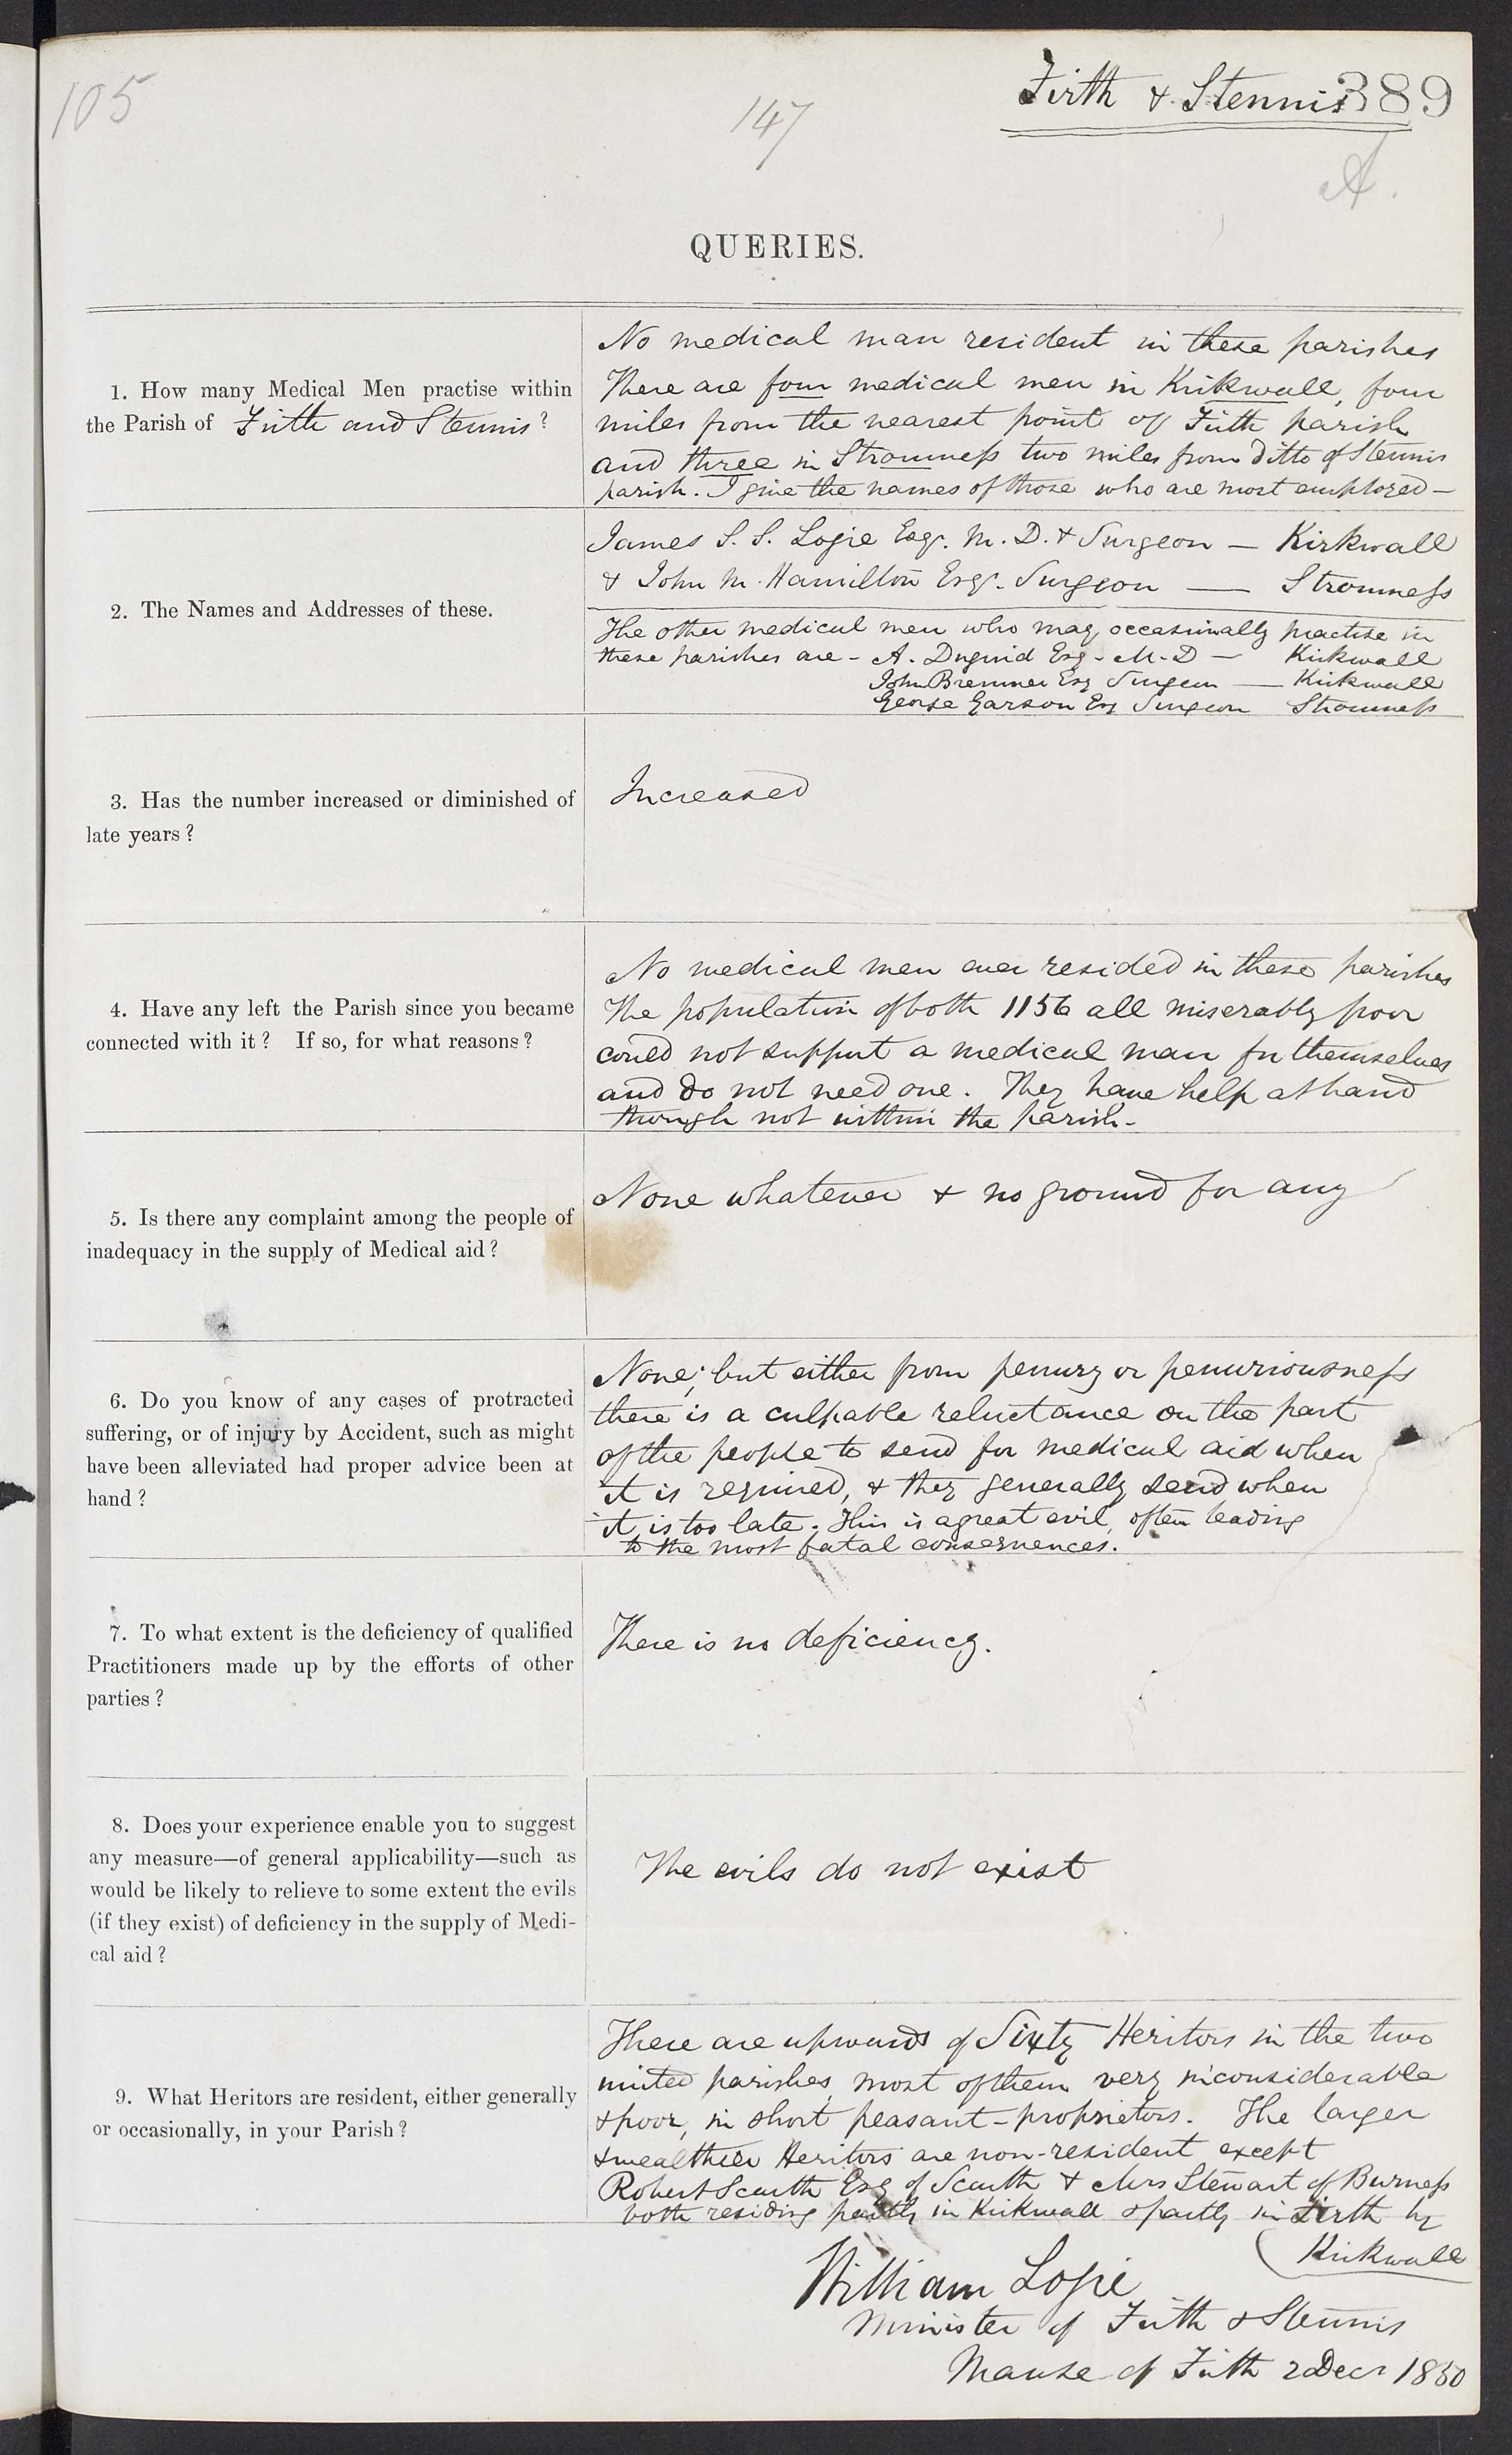 105
147
Firth & Stennis 389
A.
QUERIES.
1. How many Medical Men practise within
the Parish of Firth and Stennis?
No medical man resident in these parishes
There are four medical men in Kirkwall, four
miles from the nearest point of Firth parish
and three in Stromness two miles from ditto of Stennis
parish. I give the names of those who are most employed —
2. The Names and Addresses of these.
James S. S. Logie Esqr. M. D. & Surgeon — Kirkwall
& John M. Hamilton Esqr. Surgeon — Stromness
The other medical men who may occasionally practise in
these parishes are - A. Duguid Esq - M-D — Kirkwall
John Bremner Esq Surgeon — Kirkwall
George Garson Esq Surgeon Stromness
3. Has the number increased or diminished of
late years?
Increased
4. Have any left the Parish since you became
connected with it? If so, for what reasons?
No medical men ever resided in these parishes
The population of both 1156 all miserably poor
could not support a medical man for themselves
and do not need one. They have help at hand
though not within the parish -
5. Is there any complaint among the people of
inadequacy in the supply of Medical aid?
None whatever & no ground for any
6. Do you know of any cases of protracted
suffering, or of injury by Accident, such as might
have been alleviated had proper advice been at
hand?
None; but either from penury or penuriousness
there is a culpable reluctance on the part
of the people to send for medical aid when
it is required, & they generally send when
it is too late. This is a great evil, often leading
to the most fatal consequences.
7. To what extent is the deficiency of qualified
Practitioners made up by the efforts of other
parties?
There is no deficiency.
8. Does your experience enable you to suggest
any measure—of general applicability—such as
would be likely to relieve to some extent the evils
(if they exist) of deficiency in the supply of Medi-
cal aid?
The evils do not exist
9. What Heritors are resident, either generally
or occasionally, in your Parish?
There are upwards of Sixty Heritors in the two
united parishes, most of them very inconsiderable
& poor, in short peasant-proprietors. The larger
& wealthier Heritors are non-resident except
Robert Scarth Esq of Scarth & Mrs Stewart of Burness
both residing partly in Kirkwall & partly in Firth by
Kirkwall
William Logie
Minister of Firth & Stennis
Manse of Firth 2 Decr 1850